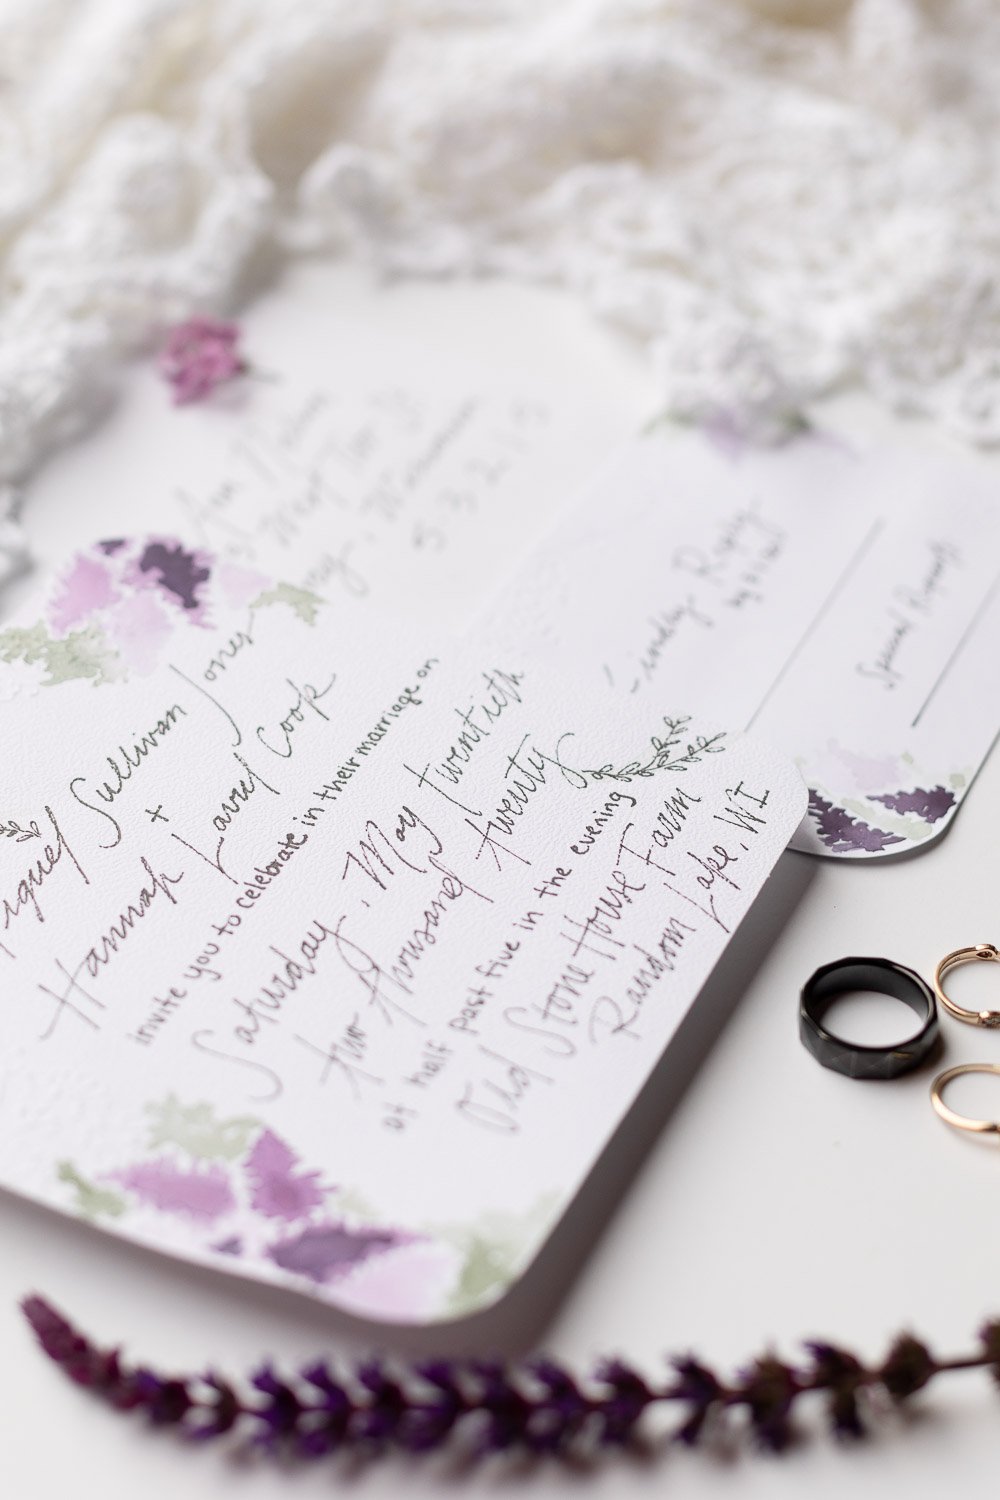 Sullivan Jones
+
Hannah Laurel Cook
invite you to celebrate in their marriage on
Saturday, May twentieth
two thousand twenty
at half past five in the evening
Old Stone House Farm
Random Lake, WI
Kindly Reply
by
Special Requests
Ann
53215